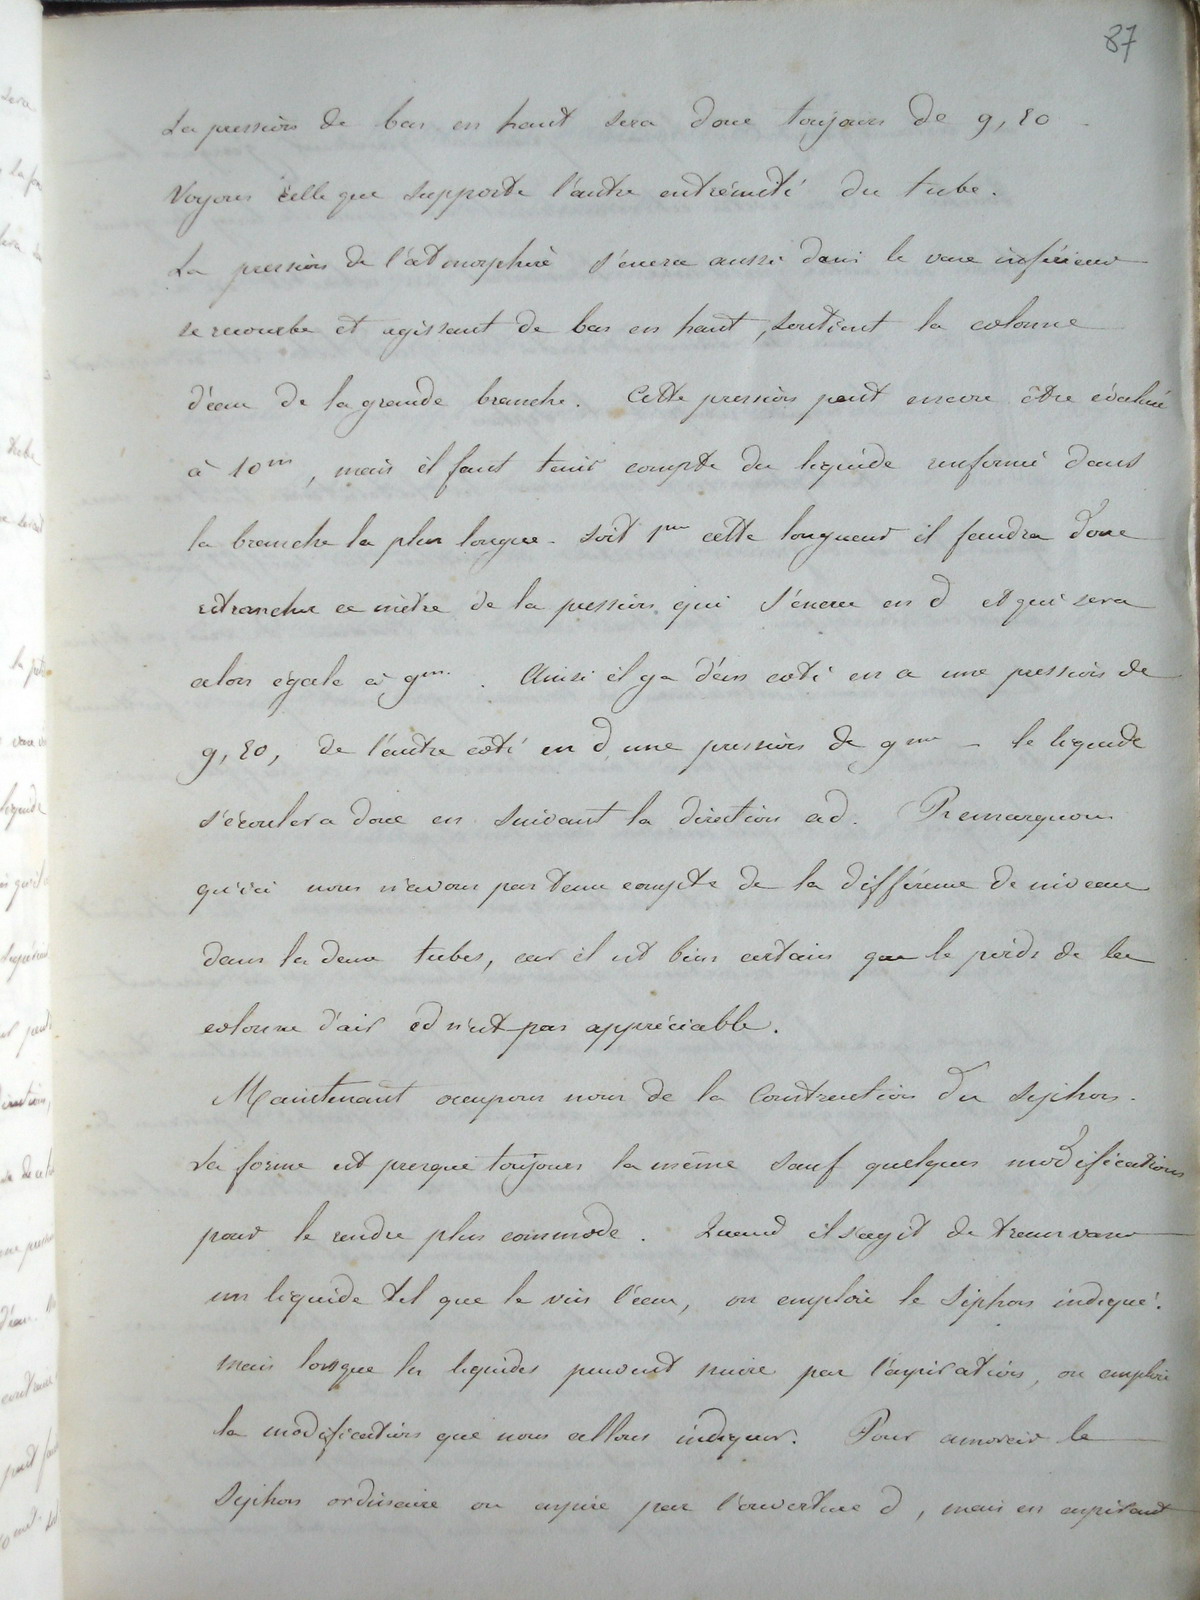 87
La pression de bas en haut sera donc toujours de 9,80
Voyons celle que supporte l'autre extrémité du tube.
La pression de l'atmosphère s'exerce aussi dans le vase inférieur
se recourbe et agissant de bas en haut, soutient la colonne
d'eau de la grande branche. Cette pression peut encore être évaluée
à 10m, mais il faut tenir compte du liquide renfermé dans
la branche la plus longue. Soit 1m cette longueur il faudra donc
retrancher ce mètre de la pression qui s'exerce en d et qui sera
alors égale à 9m. Ainsi il y a d'un coté en a une pression de
9,80, de l'autre côté en d une pression de 9m - le liquide
s'écoulera donc en suivant la direction ad. Remarquons
qu'ici nous n'avons pas tenu compte de la différence de niveau
dans les deux tubes, car il est bien certain que le poids de la
colonne d'air cd n'est pas appréciable.
Maintenant occupons nous de la Construction du Syphon.
Sa forme est presque toujours la même sauf quelques modifications
pour le rendre plus commode. Quand il s'agit de transvaser
un liquide tel que le vin l'eau, on emploie le Siphon indiqué.
mais lorsque les liquides peuvent nuire par l'aspiration, on emploie
la modification que nous allons indiquer. Pour amorcer le
Syphon ordinaire on aspire par l'ouverture d, mais en aspirant